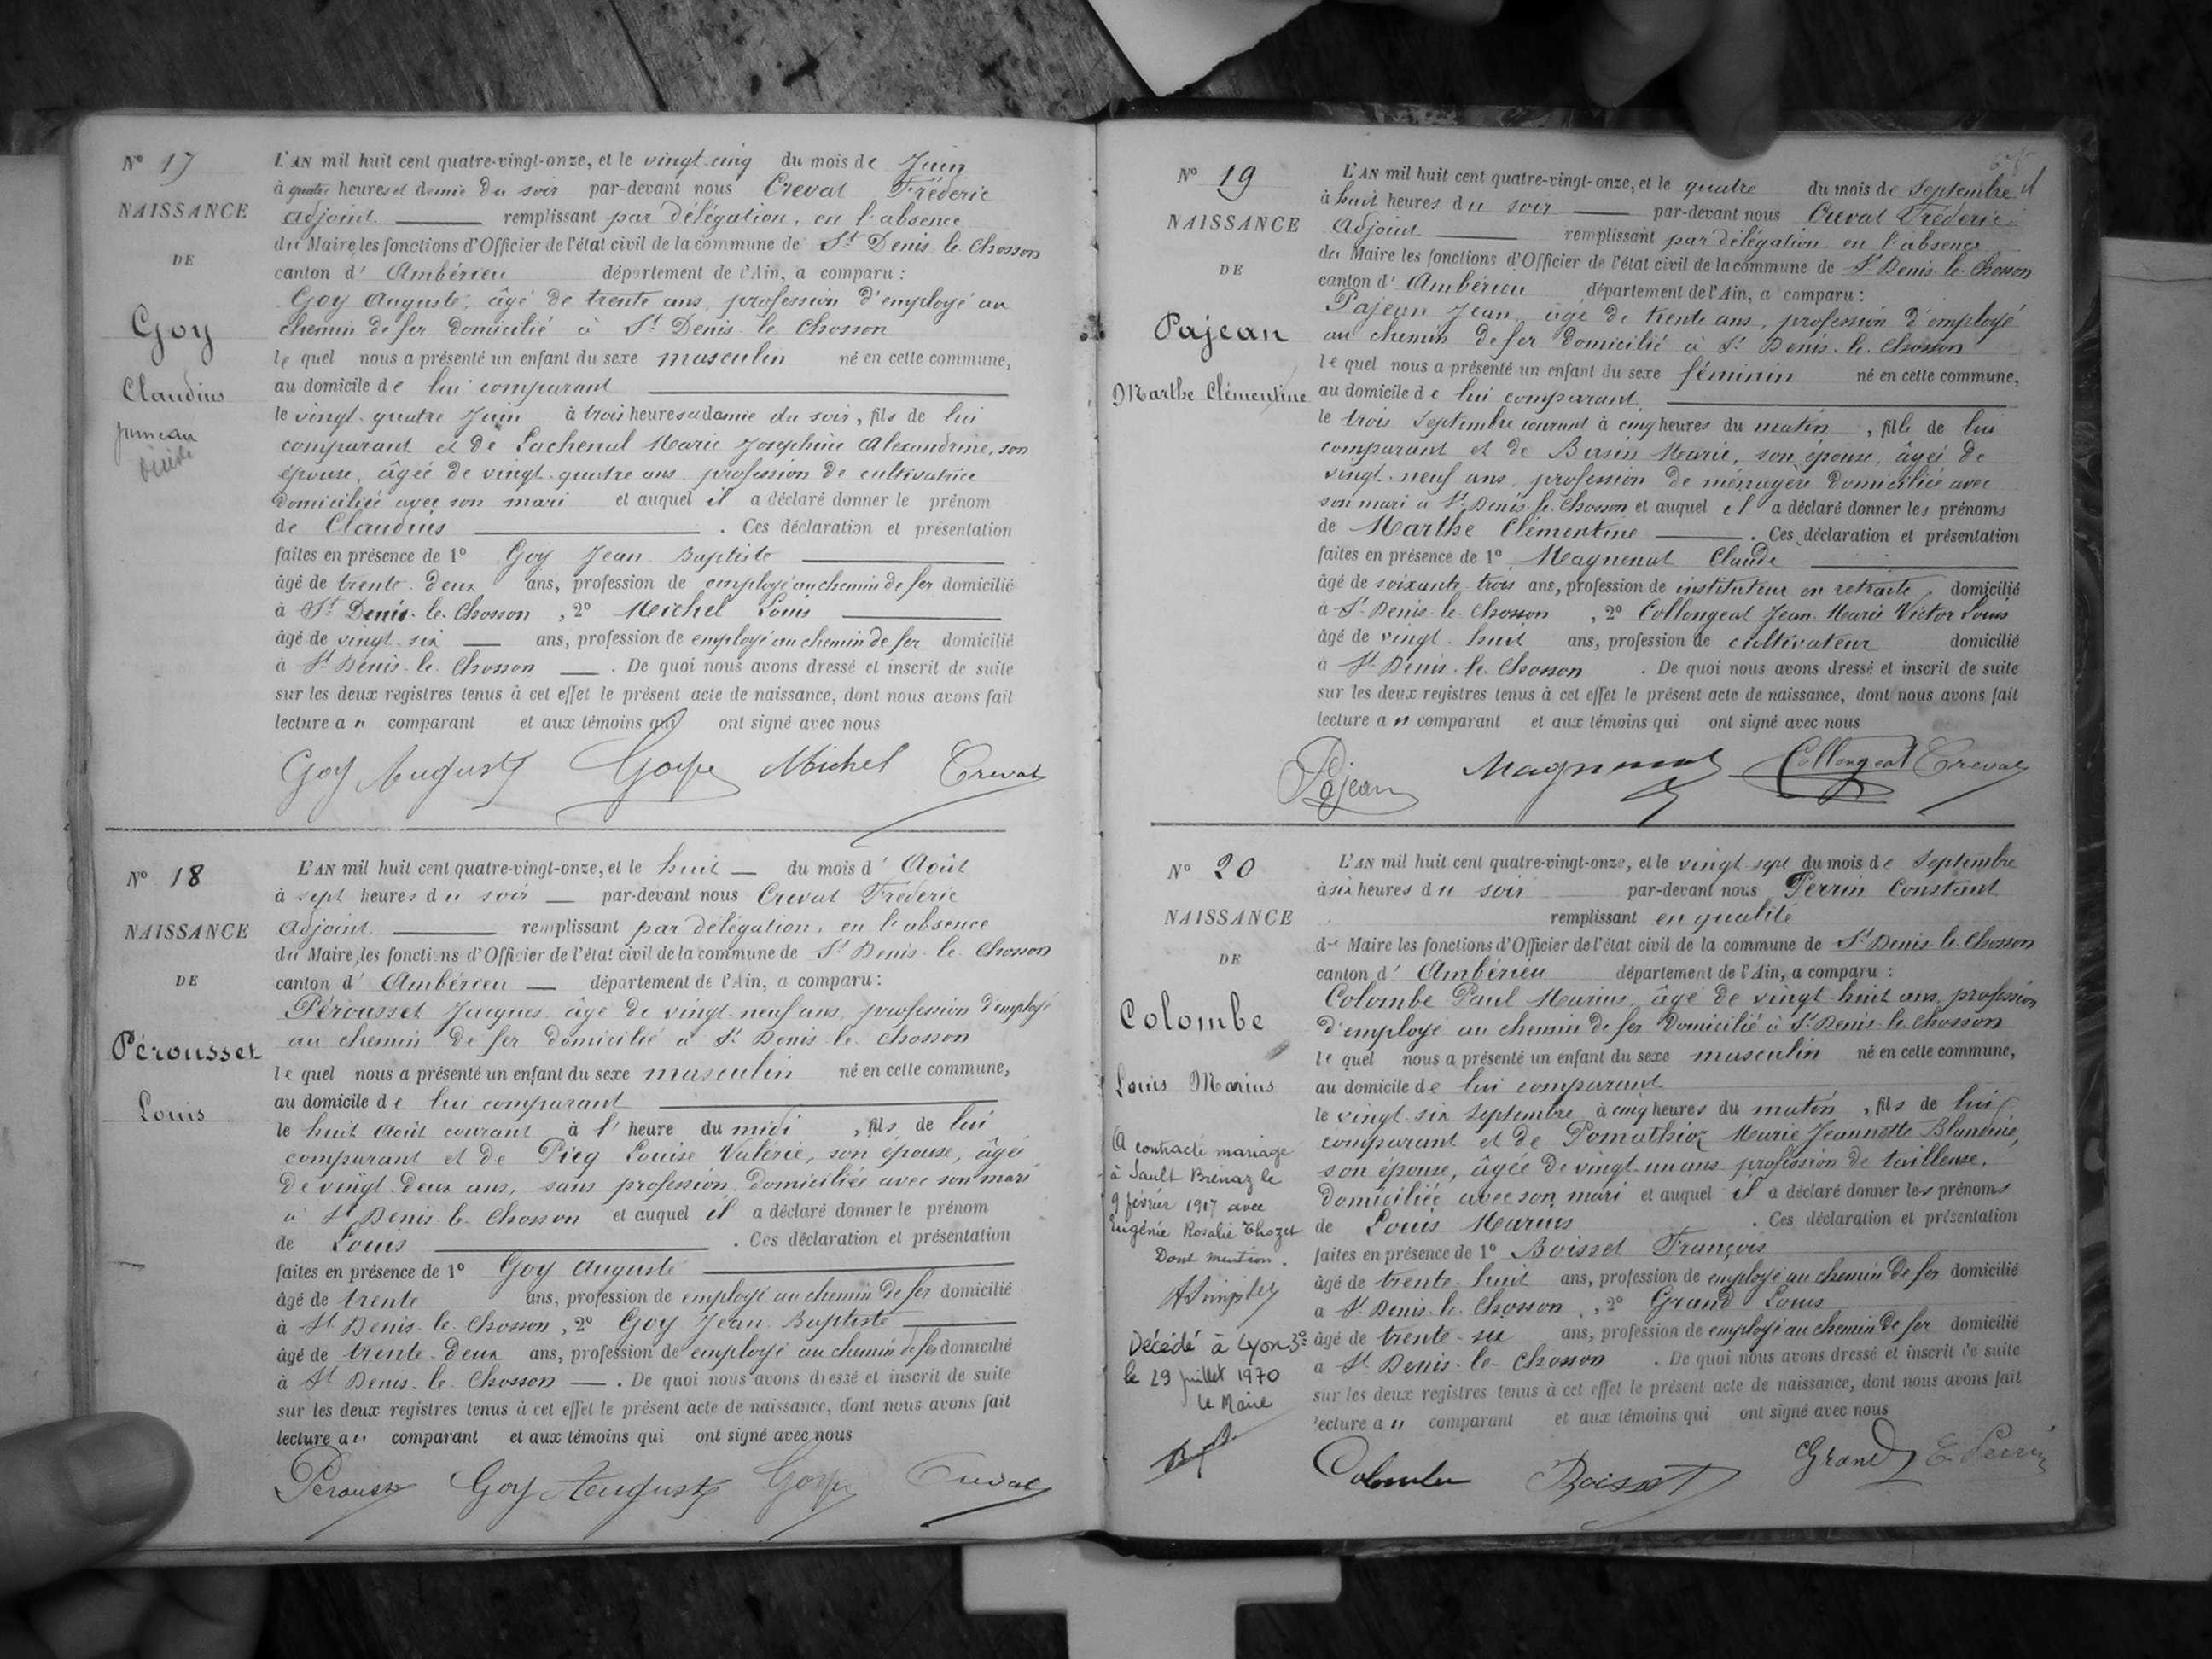 N° 17
NAISSANCE
DE
Goy
Claudius
jumeau
L'AN mil huit cent quatre-vingt-onze, et le vingt-cinq du mois de Juin
à quatre heures et demie du soir par-devant nous Creval Fréderic
adjoint remplissant par délégation, en l'absence
du Maire, les fonctions d'Officier de l'état civil de la commune de St Denis-le-Chosson
canton d' Ambérieu département de l'Ain, a comparu :
Goy Auguste, âgé de trente ans, profession d'employé au
chemin de fer domicilié à St Denis-le-Chosson
lequel nous a présenté un enfant du sexe masculin né en cette commune,
au domicile de lui comparant
le vingt-quatre Juin à trois heures et demie du soir, fils de lui
comparant et de Lachenal Marie Joséphine Alexandrine, son
épouse, âgée de vingt-quatre ans, profession de cultivatrice
domiciliée avec son mari et auquel il a déclaré donner le prénom
de Claudius . Ces déclaration et présentation
faites en présence de 1° Goy Jean Baptiste
âgé de trente-deux ans, profession de employé au chemin de fer domicilié
à St Denis-le-Chosson , 2° Michel Louis
âgé de vingt-six ans, profession de employé au chemin de fer domicilié
à St Denis-le-Chosson . De quoi nous avons dressé et inscrit de suite
sur les deux registres tenus à cet effet le présent acte de naissance, dont nous avons fait
lecture au comparant et aux témoins qui ont signé avec nous
Goy Auguste Goy Michel Creval
N° 18
NAISSANCE
DE
Pérousset
Louis
L'AN mil huit cent quatre-vingt-onze, et le huit du mois d' Août
à sept heures du soir par-devant nous Creval Fréderic
adjoint remplissant par délégation, en l'absence
du Maire, les fonctions d'Officier de l'état civil de la commune de St Denis-le-Chosson
canton d' Ambérieu département de l'Ain, a comparu :
Pérousset Jacques âgé de vingt-neuf ans, profession d'employé
au chemin de fer domicilié à St Denis-le-Chosson
lequel nous a présenté un enfant du sexe masculin né en cette commune,
au domicile de lui comparant
le huit Août courant à l' heure du midi , fils de lui
comparant et de Picq Louise Valérie, son épouse, âgée
de vingt-deux ans, sans profession, domiciliée avec son mari
à St Denis-le-Chosson et auquel il a déclaré donner le prénom
de Louis . Ces déclaration et présentation
faites en présence de 1° Goy Auguste
âgé de trente ans, profession de employé au chemin de fer domicilié
à St Denis-le-Chosson , 2° Goy Jean Baptiste
âgé de trente-deux ans, profession de employé au chemin de fer domicilié
à St Denis-le-Chosson . De quoi nous avons dressé et inscrit de suite
sur les deux registres tenus à cet effet le présent acte de naissance, dont nous avons fait
lecture au comparant et aux témoins qui ont signé avec nous
Perousset Goy Auguste Goy Creval
N° 19
NAISSANCE
DE
Pajean
Marthe Clémentine
L'AN mil huit cent quatre-vingt-onze, et le quatre du mois de Septembre
à huit heures du soir par-devant nous Creval Fréderic
adjoint remplissant par délégation en l'absence
du Maire les fonctions d'Officier de l'état civil de la commune de St Denis-le-Chosson
canton d' Ambérieu département de l'Ain, a comparu :
Pajean Jean, âgé de trente ans, profession d'employé
au chemin de fer domicilié à St Denis-le-Chosson
lequel nous a présenté un enfant du sexe féminin né en cette commune,
au domicile de lui comparant
le trois Septembre courant à cinq heures du matin , fille de lui
comparant et de Basin Marie, son épouse, âgée de
vingt-neuf ans, profession de ménagère domiciliée avec
son mari à St Denis-le-Chosson et auquel il a déclaré donner les prénoms
de Marthe Clémentine . Ces déclaration et présentation
faites en présence de 1° Magnenat Claude
âgé de soixante-trois ans, profession de instituteur en retraite domicilié
à St Denis-le-Chosson , 2° Collongeat Jean-Marie Victor Louis
âgé de vingt-huit ans, profession de cultivateur domicilié
à St Denis-le-Chosson . De quoi nous avons dressé et inscrit de suite
sur les deux registres tenus à cet effet le présent acte de naissance, dont nous avons fait
lecture au comparant et aux témoins qui ont signé avec nous
Pajean Magnenat Collongeat Creval
N° 20
NAISSANCE
DE
Colombe
Louis Marius
A contracté mariage
à Sault Brénaz le
9 février 1917 avec
Eugénie Rosalie Thozet
Dont mention.
Décédé à Lyon 3e
le 29 juillet 1970
Le Maire
L'AN mil huit cent quatre-vingt-onze, et le vingt-sept du mois de Septembre
à six heures du soir par-devant nous Perrin Constant
remplissant en qualité
de Maire les fonctions d'Officier de l'état civil de la commune de St Denis-le-Chosson
canton d' Ambérieu département de l'Ain, a comparu :
Colombe Paul Marius, âgé de vingt-huit ans, profession
d'employé au chemin de fer domicilié à St Denis-le-Chosson
lequel nous a présenté un enfant du sexe masculin né en cette commune,
au domicile de lui comparant
le vingt-six Septembre à cinq heures du matin , fils de lui
comparant et de Pomathioz Marie Jeannette Blandine,
son épouse, âgée de vingt-un ans profession de tailleuse,
domiciliée avec son mari et auquel il a déclaré donner les prénoms
de Louis Marius . Ces déclaration et présentation
faites en présence de 1° Boisset François
âgé de trente-huit ans, profession de employé au chemin de fer domicilié
à St Denis-le-Chosson , 2° Grand Louis
âgé de trente-six ans, profession de employé au chemin de fer domicilié
à St Denis-le-Chosson . De quoi nous avons dressé et inscrit de suite
sur les deux registres tenus à cet effet le présent acte de naissance, dont nous avons fait
lecture au comparant et aux témoins qui ont signé avec nous
Colombe Boisset Grand C. Perrin